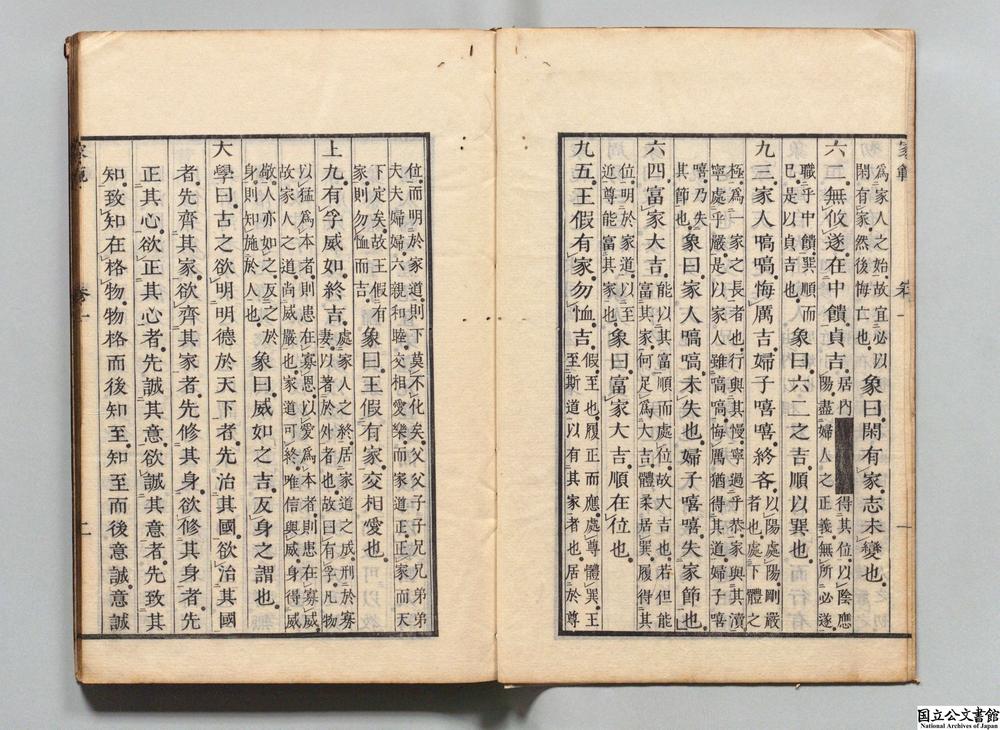 家範 卷一 一
為家人之始。故宜必以
閑有家。然後悔亡也。
象曰。閑有家。志未變也。
六二。無攸遂。在中饋。貞吉。
居內
得其位。以陰應
陽。盡婦人之正義。無所必遂。
職乎中饋。巽順而
已。是以貞吉也。
象曰。六二之吉。順以巽也。
九三。家人嗃嗃。悔厲吉。婦子嘻嘻。終吝。
以陽處陽。剛嚴
者也。處下體之
極。為一家之長者也。行與其慢。寧過乎恭。家與其瀆。
寧處乎嚴。是以家人雖嗃嗃。悔厲猶得其道。婦子嘻
嘻。乃失
其節也。
象曰。家人嗃嗃。未失也。婦子嘻嘻。失家節也。
六四。富家大吉。
能以其富順而處位。故大吉也。若但能
富其家。何足為大吉。體柔居巽。履得其
位。明於家道。以至
近尊。能富其家也。
象曰。富家大吉。順在位也。
九五。王假有家。勿恤。吉。
假至也。履正而應。處尊體巽。王
至斯道。以有其家者也。居於尊
位而明於家道。則下莫不化矣。父父子子兄兄弟弟
夫夫婦婦。六親和睦。交相愛樂。而家道正。正家而天
下定矣。故王假有
家。則勿恤而吉。
象曰。王假有家。交相愛也。
上九。有孚威如。終吉。
處家人之終。居家道之成。刑於寡
妻。以著於外者也。故曰有孚。凡物
以猛為本者。則患在寡恩。以愛為本者。則患在寡威。
故家人之道。尚威嚴也。家道可終。唯信與威。身得威
敬。人亦如之。反之於
身。則知施於人也。
象曰。威如之吉。反身之謂也。
大學曰。古之欲明明德於天下者。先治其國。欲治其國
者。先齊其家。欲齊其家者。先修其身。欲修其身者。先
正其心。欲正其心者。先誠其意。欲誠其意者。先致其
知。致知在格物。物格而後知至。知至而後意誠。意誠
家範 卷一 二
国立公文書館
National Archives of Japan